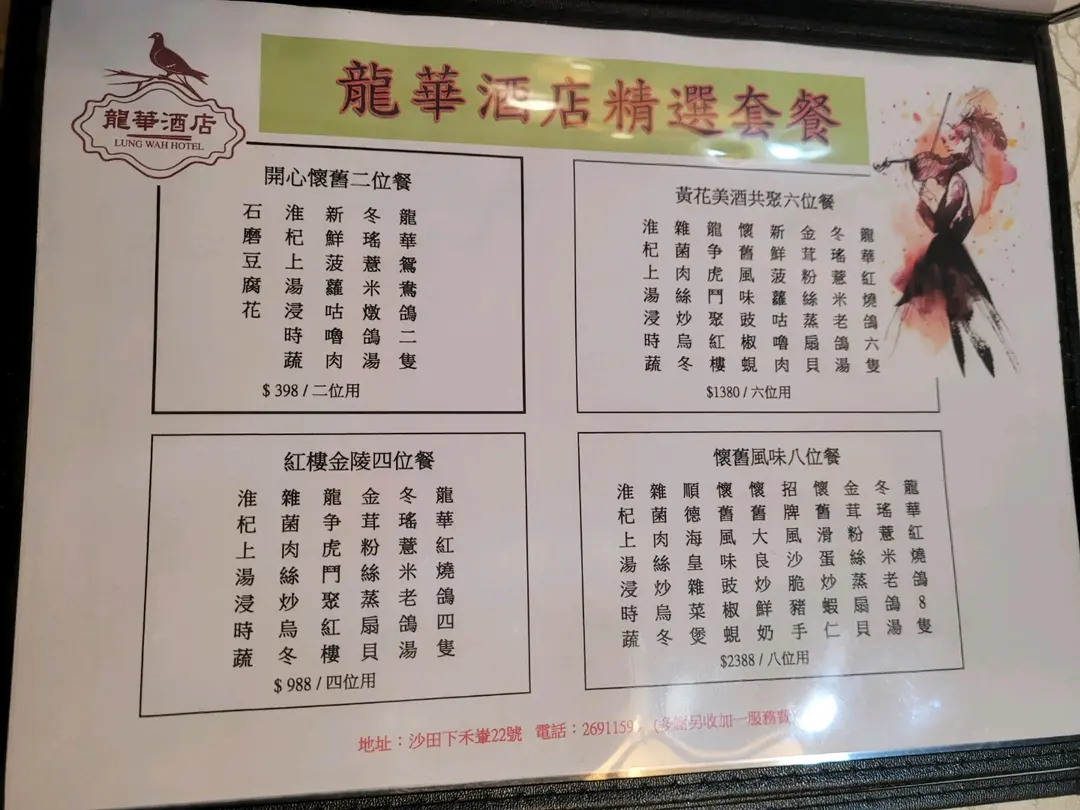 龍華酒店
LUNG WAH HOTEL
龍華酒店精選套餐
開心懷舊二位餐
龍華鴛鴦鴿二隻
冬瑤薏米燉鴿湯
新鮮菠蘿咕嚕肉
淮杞上湯浸時蔬
石磨豆腐花
$ 398 / 二位用
黃花美酒共聚六位餐
龍華紅燒鴿六隻
冬瑤薏米老鴿湯
金茸粉絲蒸扇貝
新鮮菠蘿咕嚕肉
懷舊風味豉椒蜆
龍爭虎鬥聚紅樓
雜菌肉絲炒烏冬
淮杞上湯浸時蔬
$1380 / 六位用
紅樓金陵四位餐
龍華紅燒鴿四隻
冬瑤薏米老鴿湯
金茸粉絲蒸扇貝
龍爭虎鬥聚紅樓
雜菌肉絲炒烏冬
淮杞上湯浸時蔬
$ 988 / 四位用
懷舊風味八位餐
龍華紅燒鴿8隻
冬瑤薏米老鴿湯
金茸粉絲蒸扇貝
懷舊滑蛋炒蝦仁
招牌風沙脆豬手
懷舊大良炒鮮奶
懷舊風味豉椒蜆
順德海皇雜菜煲
雜菌肉絲炒烏冬
淮杞上湯浸時蔬
$2388 / 八位用
地址：沙田下禾輋22號 電話：2691159 另收加一服務費